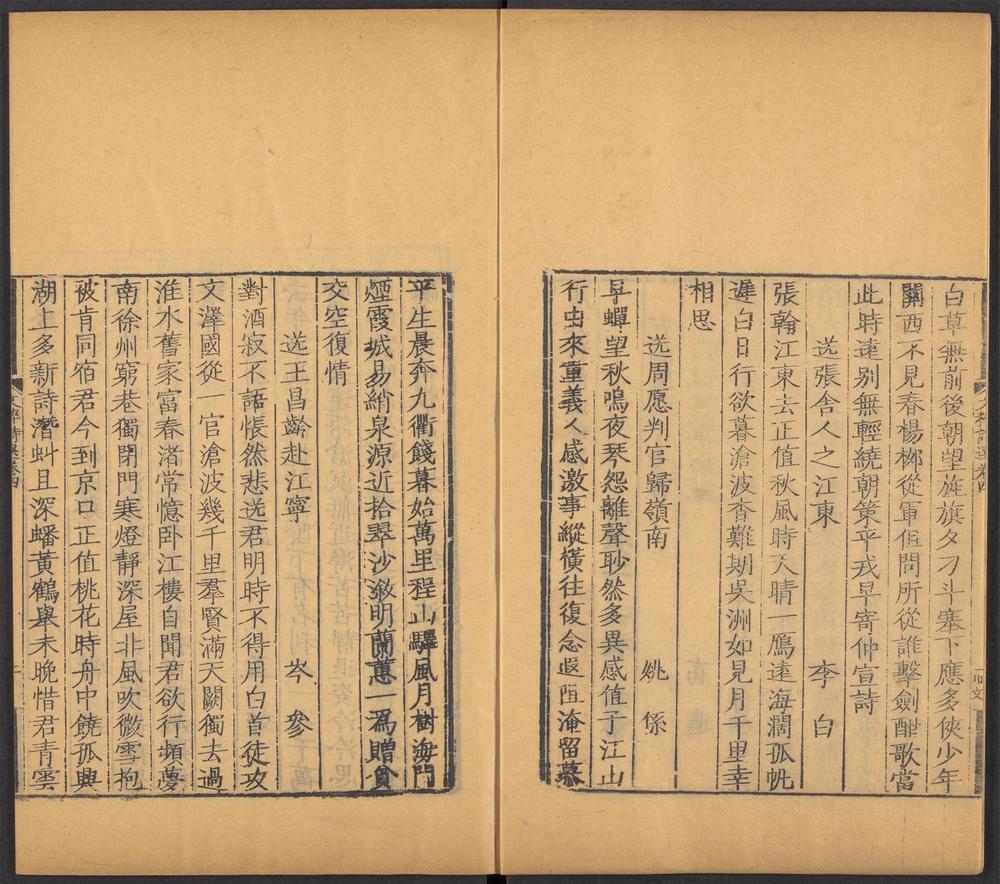 白草無前後朝望旌旗夕刁斗塞下應多俠少年
關西不見春楊柳從軍借問所從誰擊劍酣歌當
此時遠别無輕繞朝策平戎早寄仲宣詩
送張舍人之江東 李白
張翰江東去正值秋風時天晴一鴈遠海濶孤帆
遲白日行欲暮滄波杳難期吳洲如見月千里幸
相思
送周愿判官歸嶺南 姚係
早蟬望秋鳴夜琴怨離聲眇然多異感值子江山
行由來重義人感激事縱横往復念遐阻淹留慕
平生晨奔九衢餞暮始萬里程山驛風月樹海門
煙霞城易綃泉源近拾翠沙溆明蘭蕙一爲贈貧
交空復情
送王昌齡赴江寧 岑參
對酒寂不語悵然悲送君明時不得用白首徒攻
文澤國從一官滄波幾千里羣賢滿天闕獨去過
淮水舊家富春渚常憶卧江樓自聞君欲行頻夢
南徐州窮巷獨閉門寒燈靜深屋非風吹微雪抱
被肯同宿君今到京口正值桃花時舟中饒孤興
湖上多新詩潛虯且深蟠黃鶴舉未晚惜君青雲